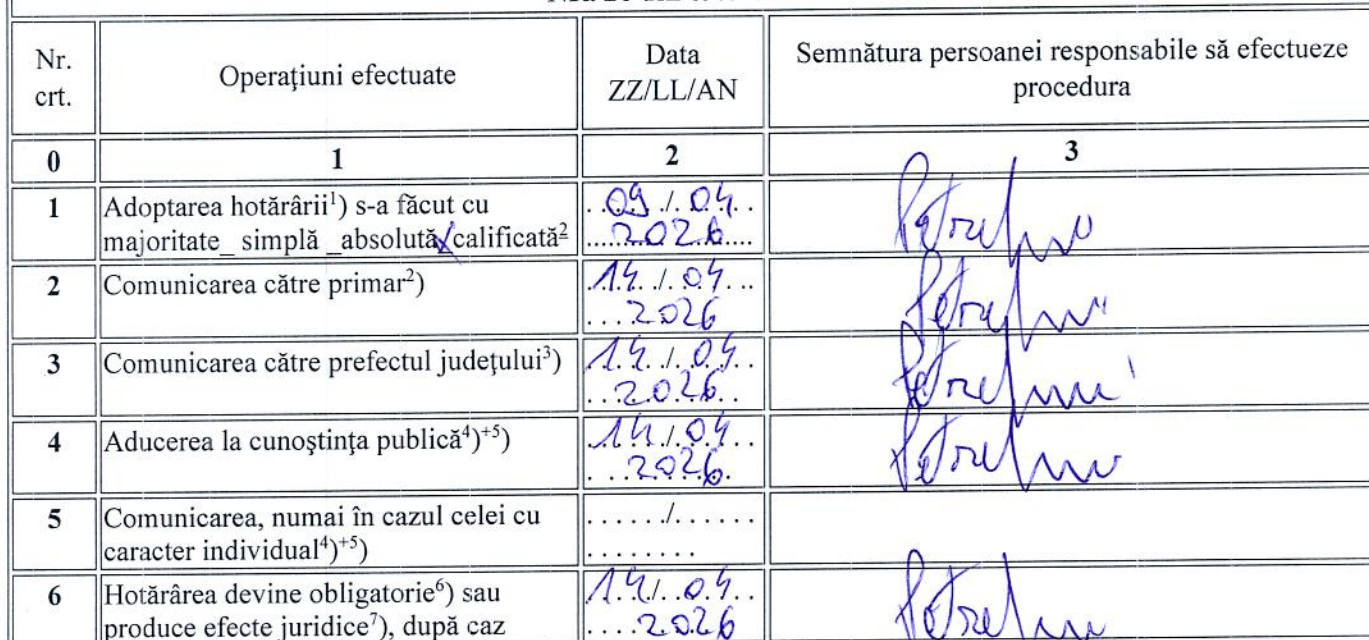 Nr.
crt.
Operaţiuni efectuate
Data
ZZ/LL/AN
Semnătura persoanei responsabile să efectueze
procedura
0
1
2
3
1
Adoptarea hotărârii¹) s-a făcut cu
majoritate_ simplă _absolută x calificată²
09/04
2026
2
Comunicarea către primar²)
14/04
2026
3
Comunicarea către prefectul judeţului³)
14/04
2026
4
Aducerea la cunoştinţa publică⁴)⁺⁵)
14/04
2026
5
Comunicarea, numai în cazul celei cu
caracter individual⁴)⁺⁵)
....../......
........
6
Hotărârea devine obligatorie⁶) sau
produce efecte juridice⁷), după caz
14/04
2026